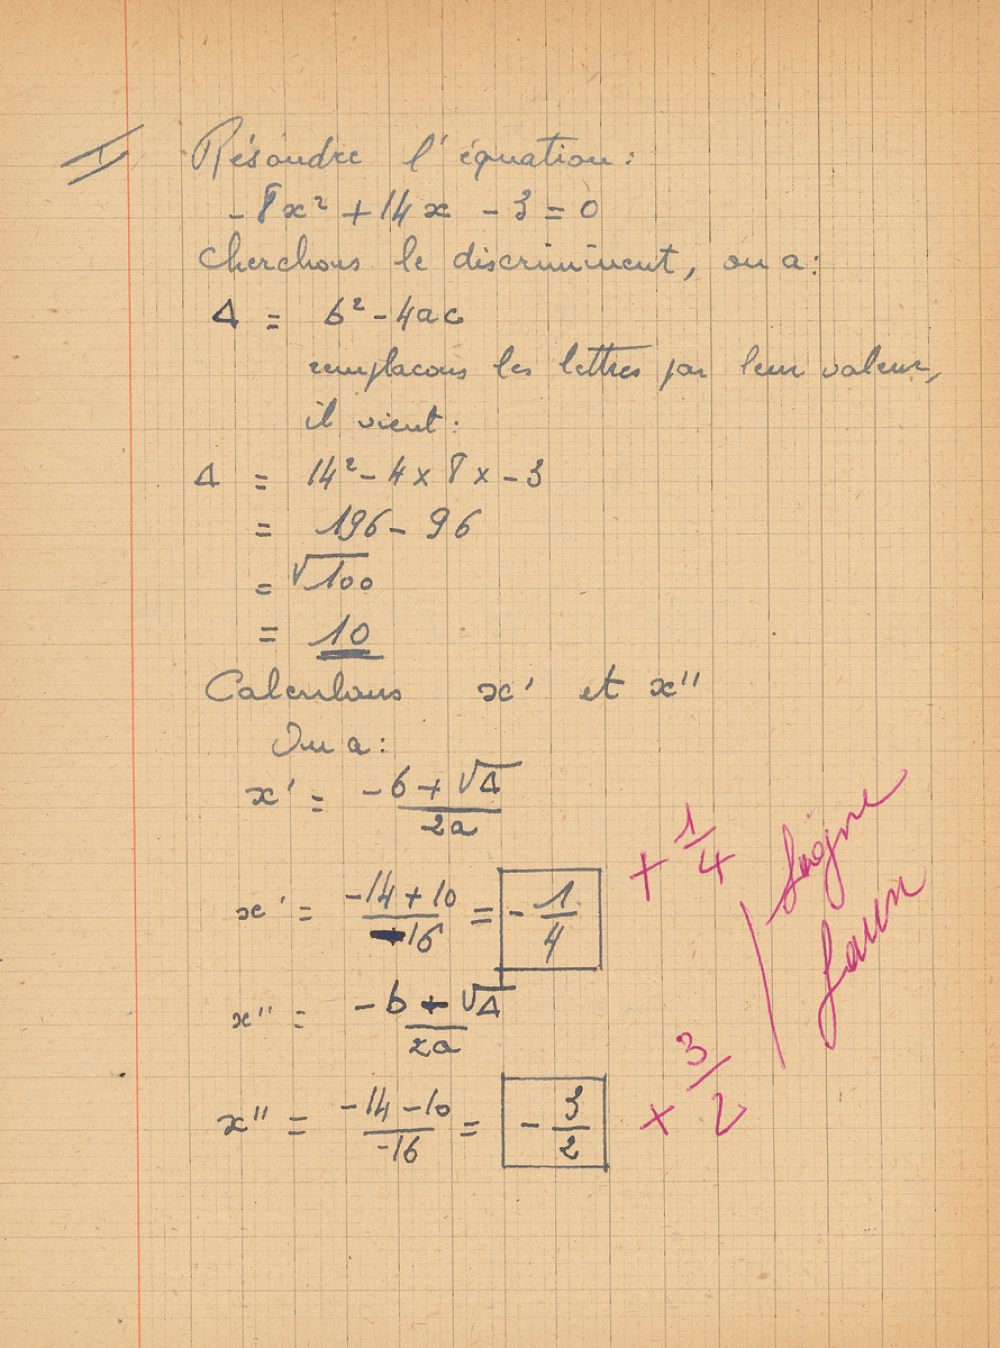 I
Résoudre l'équation :
- 8x² + 14x - 3 = 0
Cherchons le discriminent, on a :
Δ = b² - 4ac
remplacons les lettres par leur valeur,
il vient :
Δ = 14² - 4 x 8 x - 3
= 196 - 96
= √100
= 10
Calculons x' et x''
On a :
x' = (-b + √Δ) / 2a
x' = (-14 + 10) / -16 = - 1/4
+ 1/4
x'' = (-b - √Δ) / 2a
x'' = (-14 - 10) / -16 = - 3/2
+ 3/2
Signe
faux